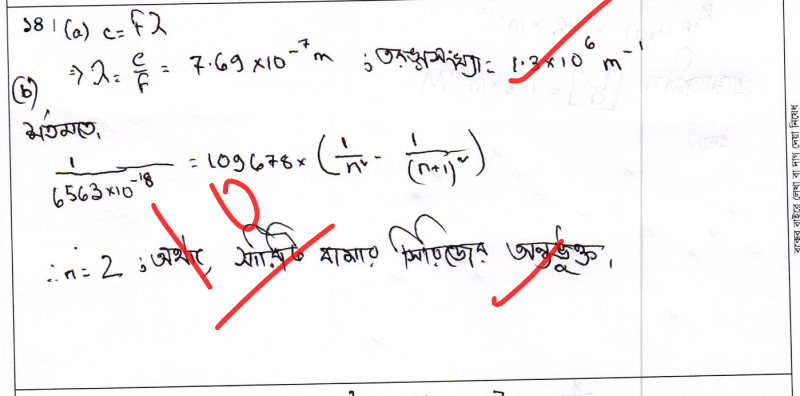 ১৪। (a) c = fλ
⇒ λ = c/f = 7.69 × 10⁻⁷ m ; তরঙ্গসংখ্যা = 1.3 × 10⁶ m⁻¹
(b)
শর্তমতে,
1/(6563 × 10⁻¹⁸) = 109678 × (1/n² - 1/(n+1)²)
10
∴ n = 2 ; অর্থাৎ, সারিটি বামার সিরিজের অন্তর্ভুক্ত।
বক্সের বাইরে লেখা বা দাগ দেয়া নিষেধ